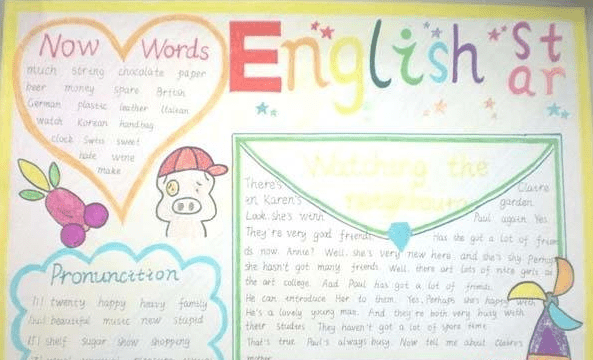 English Star
Now Words
much string chocolate paper
beer money spare British
German plastic leather Italian
watch Korean handbag
clock Swiss sweet
hate wine
make
Pronunciation
twenty happy heavy family
beautiful music new stupid
[ʃ] shelf sugar show shopping
Watching the
neighbours
There's Claire
in Karen's garden.
Look, she's with Paul again. Yes.
They're very good friends. Has she got a lot of frien
ds now, Annie? Well, she's very new here, and she's shy. Perhaps
she hasn't got many friends. Well, there are lots of nice girls at
the art college. And Paul has got a lot of friends.
He can introduce Her to them. Yes, Perhaps she's happy with
He's a lovely young man. And they're both very busy with
their studies. They haven't got a lot of spare time.
That's true. Paul's always busy. Now tell me about Claire's
mother.